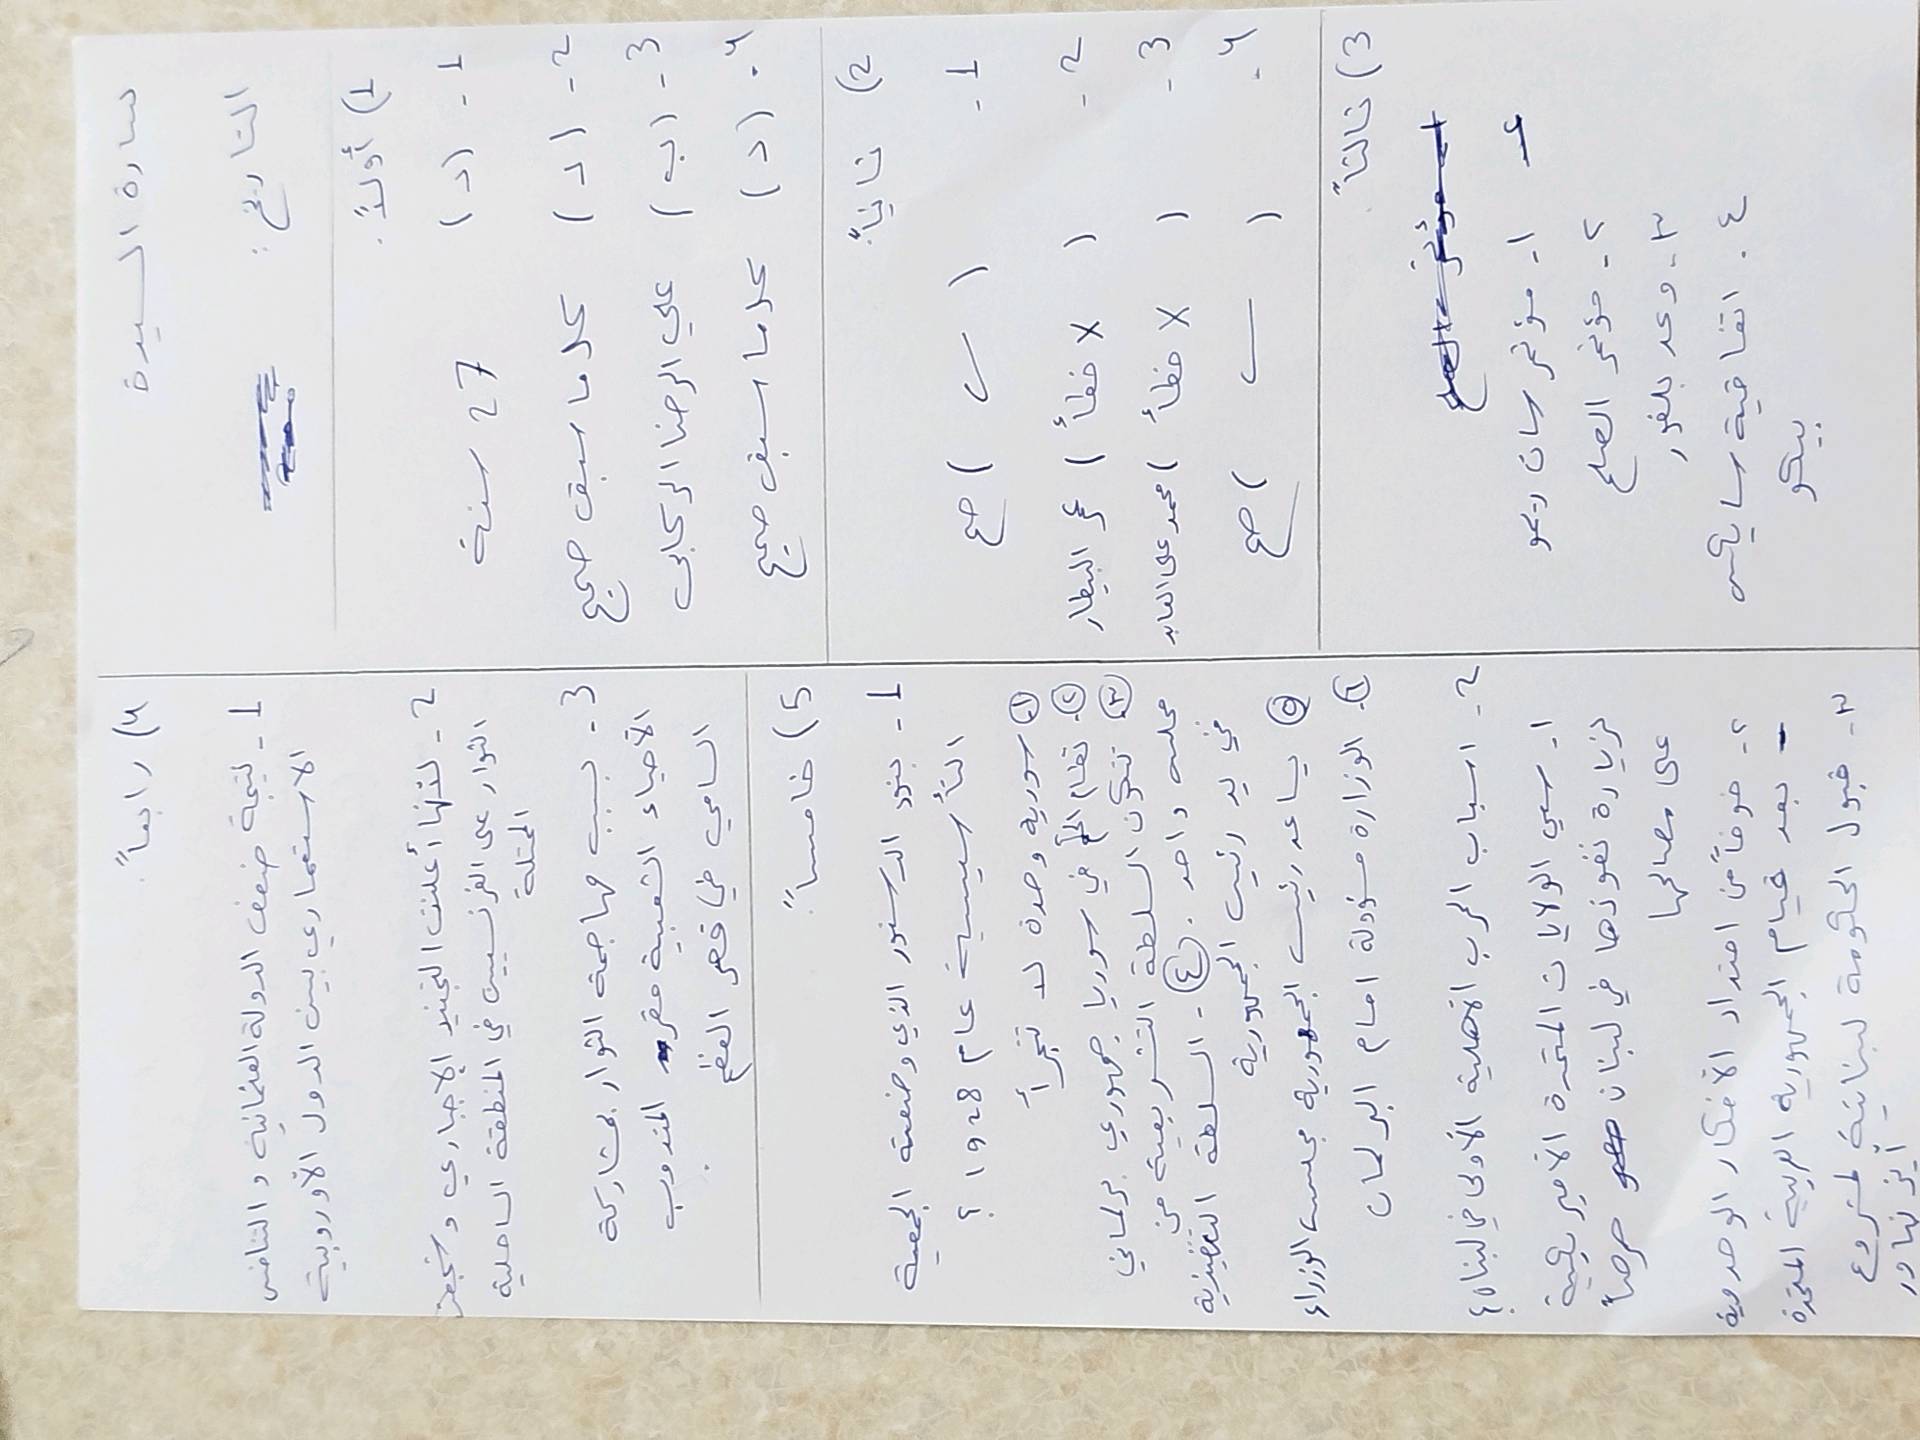 سارة السيدة
التاريخ :
1) أولاً :
1 - (د) 27 سنة
2 - (د) كلاما سبق صحيح
3 - (ب) علي الرضا الركابي
4 . (د) كلاما سبق صحيح
2) ثانياً :
1 - ( ) صح
2 - ( X خطأ ) عمر البيطار
3 - ( X خطأ ) محمد علي العابد
4 - ( ) صح
3) ثالثاً :
١- مؤتمر سان ريمو
٢- مؤتمر الصلح
٣- وعد بلفور
٤. اتفاقية سايكس
بيكو
4) رابعاً :
1 - نتيجة ضعف الدولة العثمانية و التنافس
الاستعماري بين الدول الأوروبية
2 - لأنها أعلنت التجنيد الإجباري و تجمع
الثوار على الفرنسيين في المنطقة الساحلية
المحتلة
3 - بسبب مهاجمة الثوار بمشاركة
الأحياء الشعبية مقر المندوب
السامي في قصر العظم
5) خامساً :
1 - بنود الدستور الذي وضعته الجمعية
التأسيسية عام ١٩٢٨ ؟
١ سورية وحدة لا تتجزأ
٢. نظام الحكم في سوريا جمهوري برلماني
٣. تتكون السلطة التشريعية من
مجلس واحد . ٤ - السلطة التنفيذية
في يد رئيس الجمهورية
٥ يساعد رئيس الجمهورية مجلس الوزراء
٦. الوزارة مسؤولة امام البرلمان
2 - اسباب الحرب الأهلية الأولى في لبنان؟
١- سعي الولايات المتحدة الأميريكية
لزيارة نفوذها في لبنان حرصاً
على مصالحها
٢. خوفاً من امتداد الأفكار الوحدوية
بعد قيام الجمهورية العربية المتحدة
٣- قبول الحكومة لبنانية لمشروع
أيزنهاور